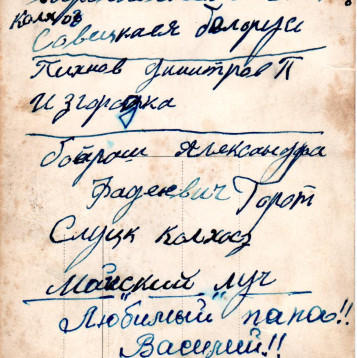 Колхоз
Совецкая белорус
Пихнов Димитров П
Изгородка
Ботраш Александра
Фадеквич Город
Слуцк колхоз
Майский луч
Любимый папа!!
Василий!!